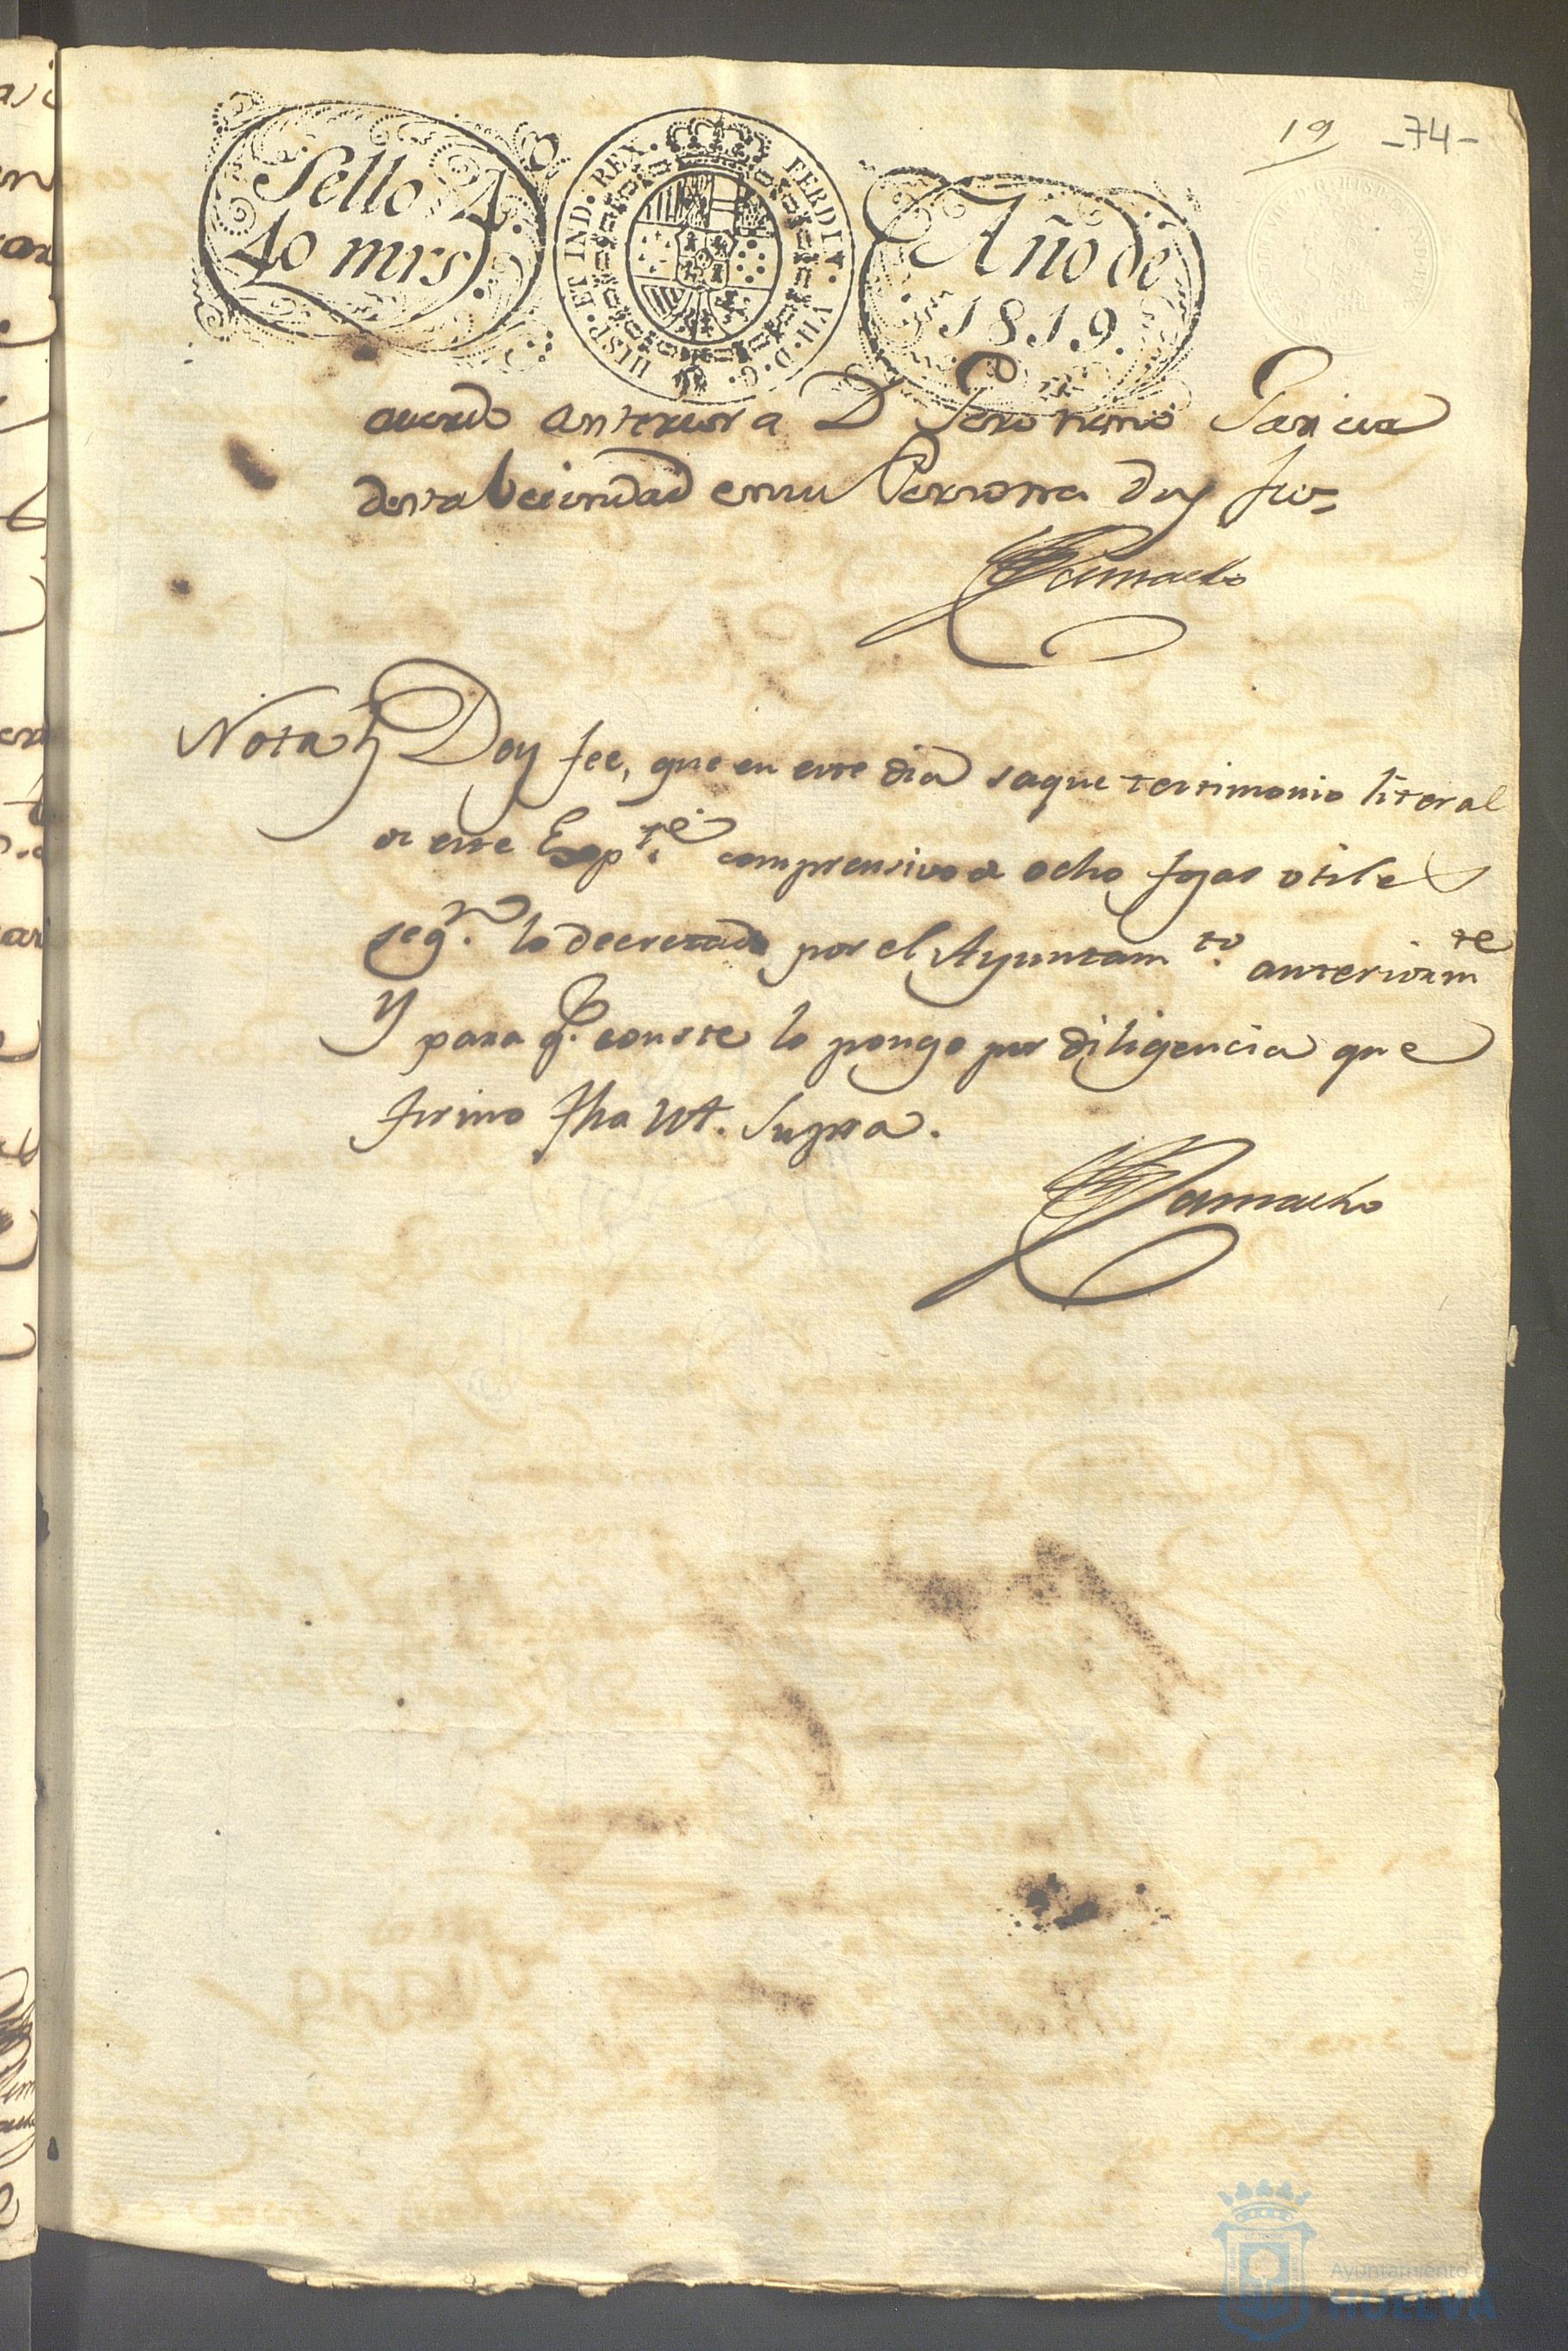 19 -74-
Sello 4º
40 mrs.
HISP. ET IND. REX. FERDIN. VII. D. G.
Año de
1819.
auerdo anterior a D Geronimo Garcia
desta Vecindad en su Persona doy fee=
Camacho
Nota Doy fee, que en este dia saque testimonio literal
de este Expte. comprensivo de ocho fojas utiles
segn. lo decretado por el Ayuntamto. anteriormte
Y para q. conste lo pongo por diligencia que
firmo fha Ut. Supra.
Camacho
Ayuntamiento de
HUELVA